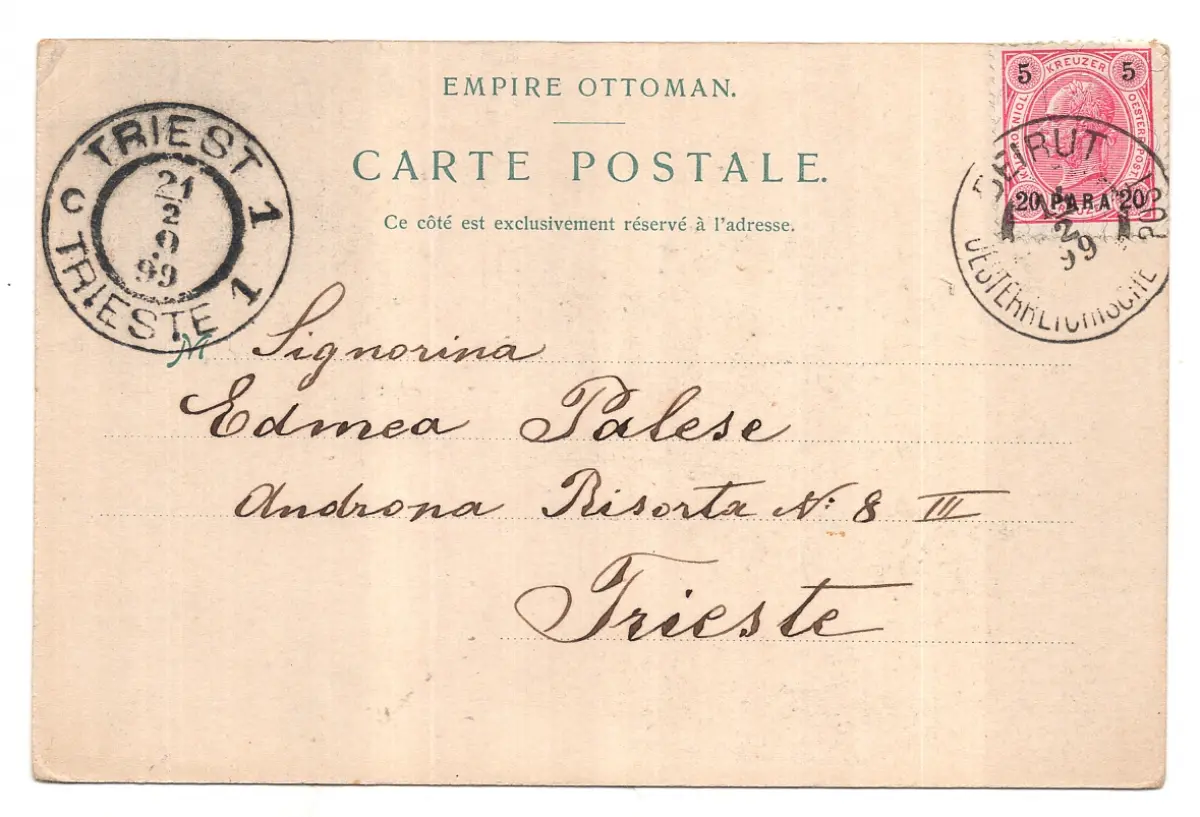 EMPIRE OTTOMAN.
CARTE POSTALE.
Ce côté est exclusivement réservé à l'adresse.
5 KREUZER 5
OESTERR. POST
20 PARA 20
BEIRUT
99
OESTERREICHISCHE POST
TRIEST 1
21
2
9
99
C TRIESTE 1
M Signorina
Edmea Palese
Androna Risorta N: 8 III
Trieste